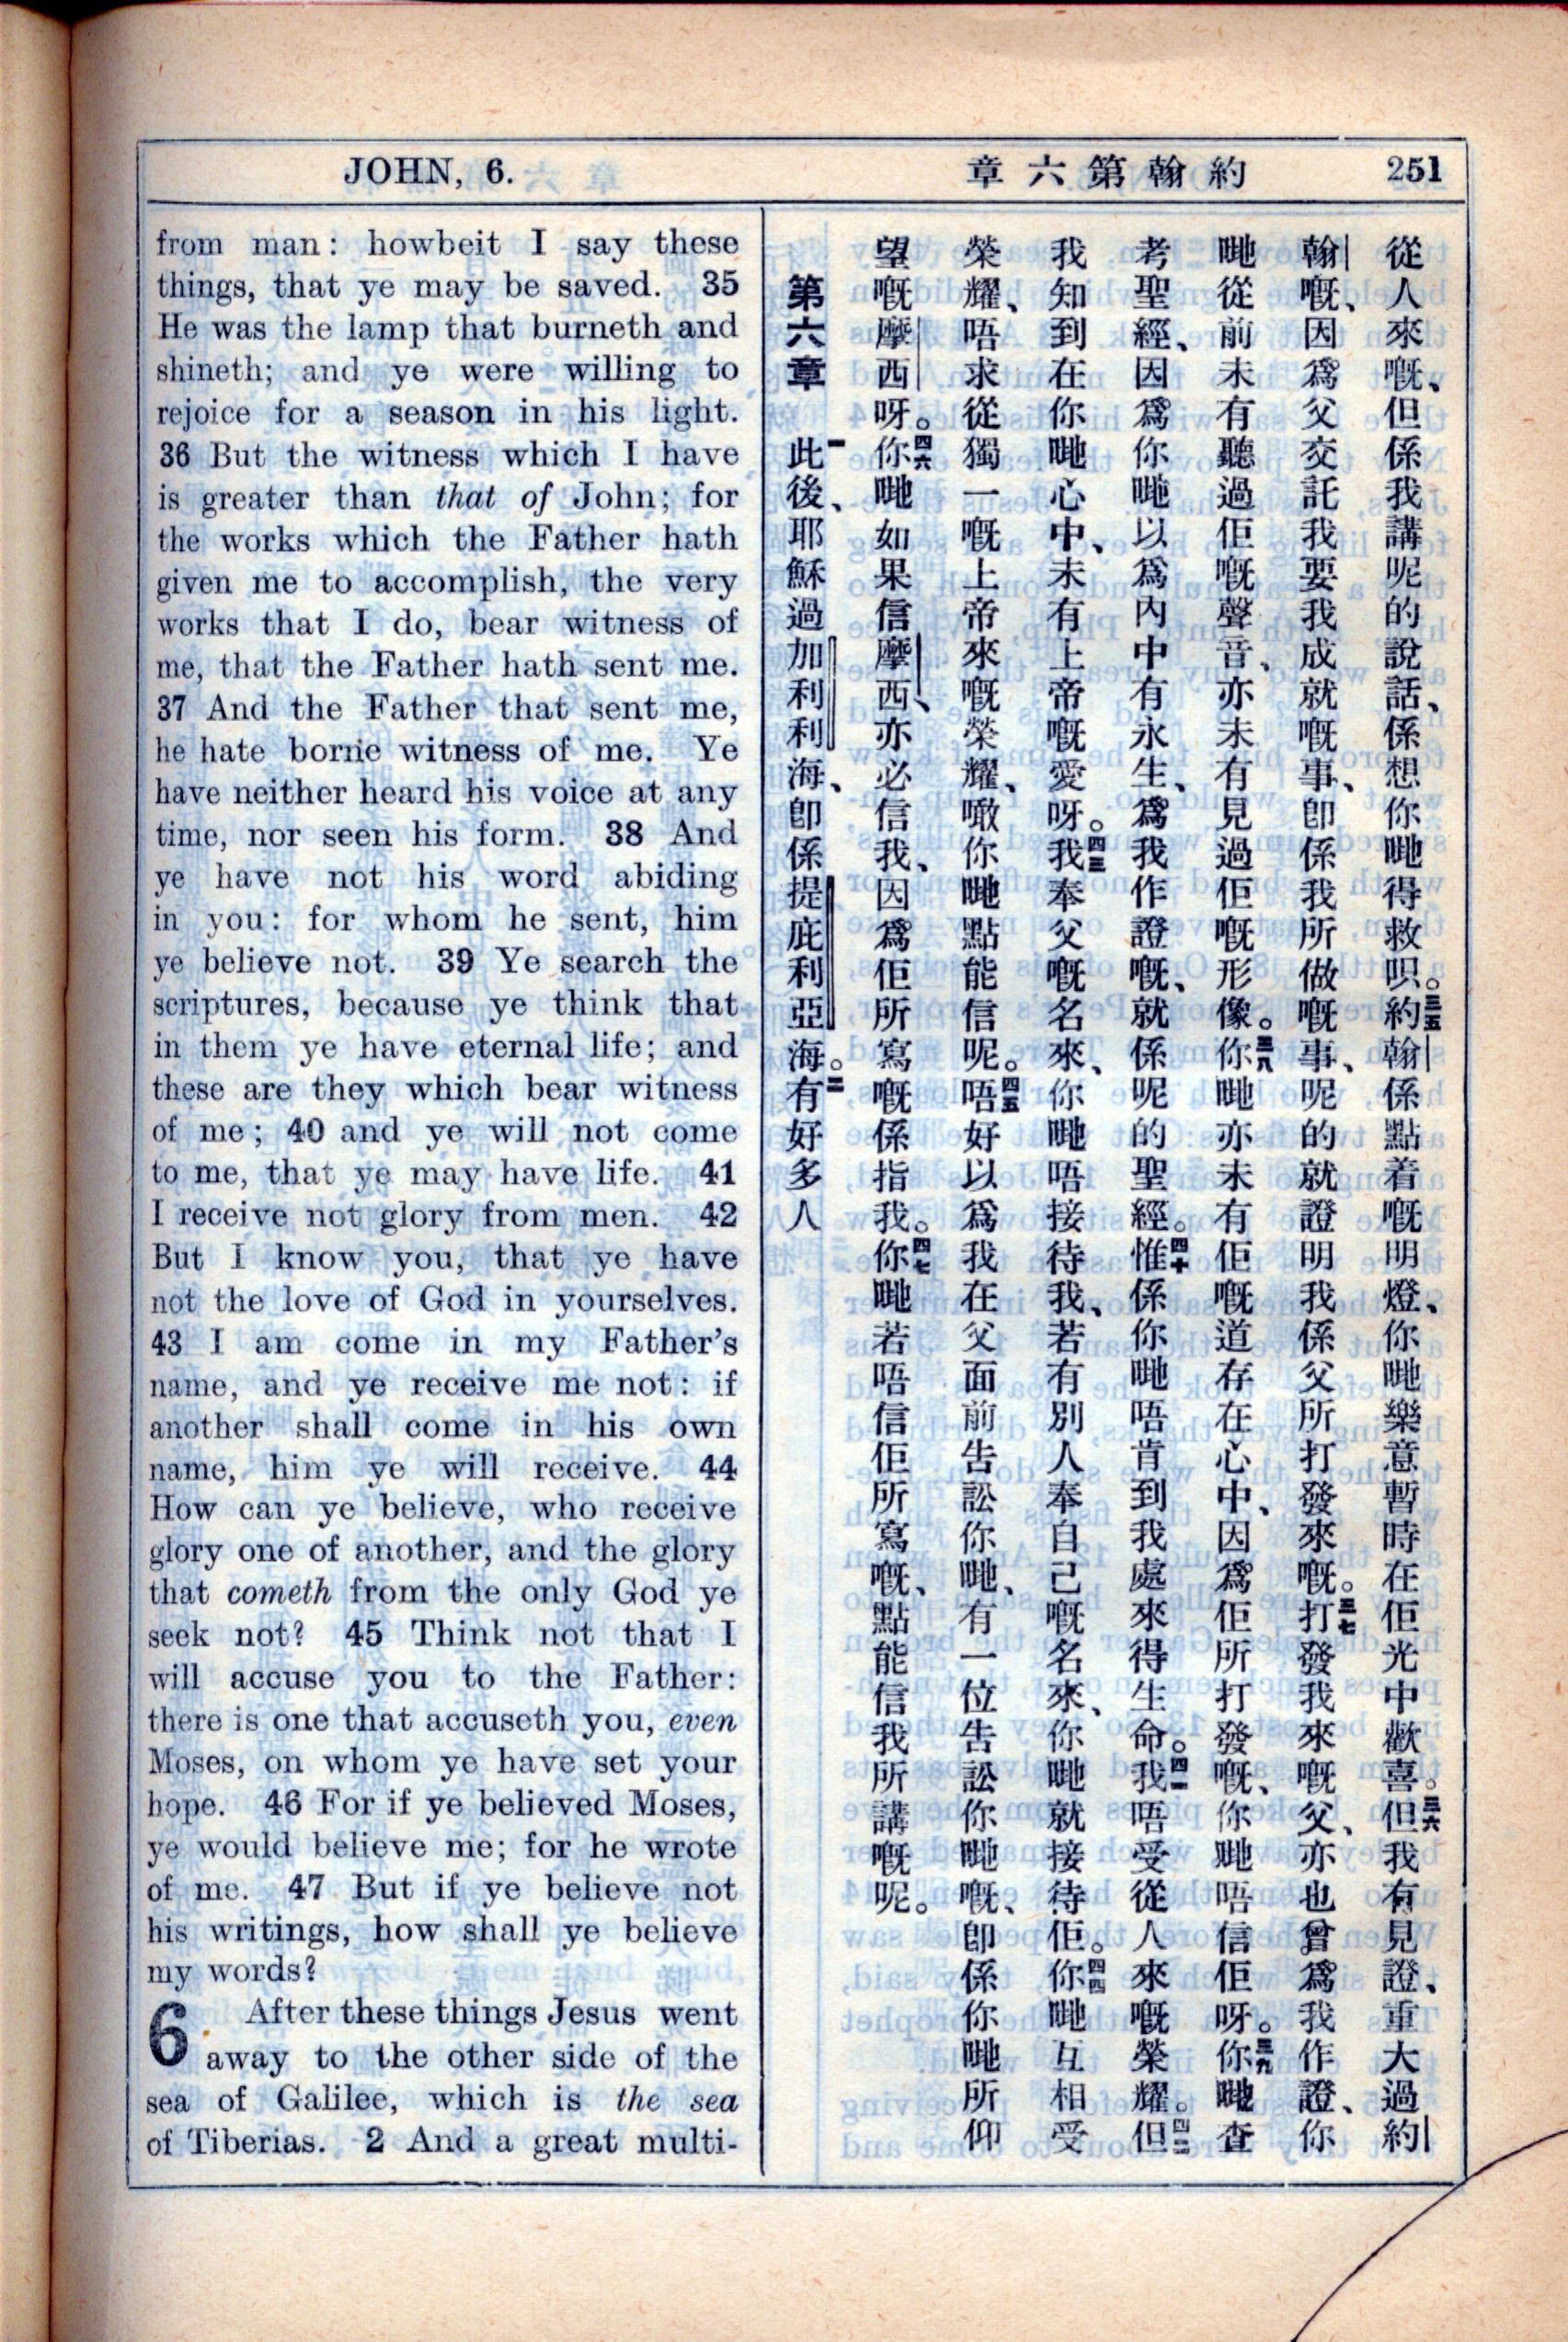 JOHN, 6.
章六第翰約
251
from man: howbeit I say these
things, that ye may be saved. 35
He was the lamp that burneth and
shineth; and ye were willing to
rejoice for a season in his light.
36 But the witness which I have
is greater than that of John; for
the works which the Father hath
given me to accomplish, the very
works that I do, bear witness of
me, that the Father hath sent me.
37 And the Father that sent me,
he hate borne witness of me. Ye
have neither heard his voice at any
time, nor seen his form. 38 And
ye have not his word abiding
in you: for whom he sent, him
ye believe not. 39 Ye search the
scriptures, because ye think that
in them ye have eternal life; and
these are they which bear witness
of me; 40 and ye will not come
to me, that ye may have life. 41
I receive not glory from men. 42
But I know you, that ye have
not the love of God in yourselves.
43 I am come in my Father's
name, and ye receive me not: if
another shall come in his own
name, him ye will receive. 44
How can ye believe, who receive
glory one of another, and the glory
that cometh from the only God ye
seek not? 45 Think not that I
will accuse you to the Father:
there is one that accuseth you, even
Moses, on whom ye have set your
hope. 46 For if ye believed Moses,
ye would believe me; for he wrote
of me. 47 But if ye believe not
his writings, how shall ye believe
my words?
6 After these things Jesus went
away to the other side of the
sea of Galilee, which is the sea
of Tiberias. 2 And a great multi-
從人來嘅、但係我講呢的說話、係想你哋得救呮。三五約翰係點着嘅明燈、你哋樂意暫時在佢光中歡喜。三六但我有見證、重大過約
翰嘅、因爲父交託我要我成就嘅事、卽係我所做嘅事、呢的就證明我係父所打發來嘅。三七打發我來嘅父、亦也曾爲我作證、你
哋從前未有聽過佢嘅聲音、亦未有見過佢嘅形像。三八你哋亦未有佢嘅道存在心中、因爲佢所打發嘅、你哋唔信佢呀。三九你哋查
考聖經、因爲你哋以爲內中有永生、爲我作證嘅、就係呢的聖經。四十惟係你哋唔肯到我處來得生命。四一我唔受從人來嘅榮耀。四二但
我知到在你哋心中、未有上帝嘅愛呀。四三我奉父嘅名來、你哋唔接待我、若有別人奉自己嘅名來、你哋就接待佢。四四你哋互相受
榮耀、唔求從獨一嘅上帝來嘅榮耀、噉你哋點能信呢。四五唔好以爲我在父面前告訟你哋、有一位告訟你哋嘅、卽係你哋所仰
望嘅摩西呀。四六你哋如果信摩西、亦必信我、因爲佢所寫嘅係指我。四七你哋若唔信佢所寫嘅、點能信我所講嘅呢。
第六章 一此後、耶穌過加利利海、卽係提庇利亞海。二有好多人